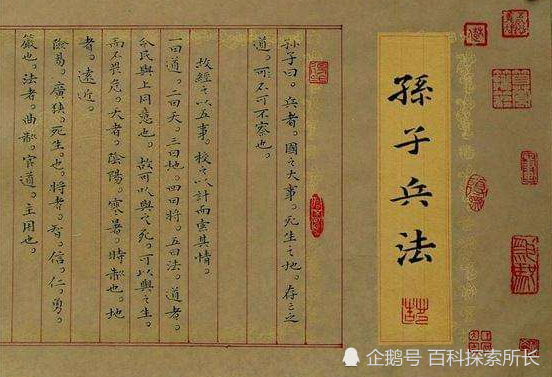 孫子兵法
孫子曰。兵者。國之大事。死生之地。存亡之
道。不可不察也。
故經之以五事。校之以計而索其情。
一曰道。二曰天。三曰地。四曰將。五曰法。道者。
令民與上同意也。故可以與之死。可以與之生。
而不畏危。天者。陰陽。寒暑。時制也。地
者。遠近。
險易。廣狹。死生。也。將者。智。信。仁。勇。
嚴也。法者。曲制。官道。主用也。
企鹅号 百科探索所长